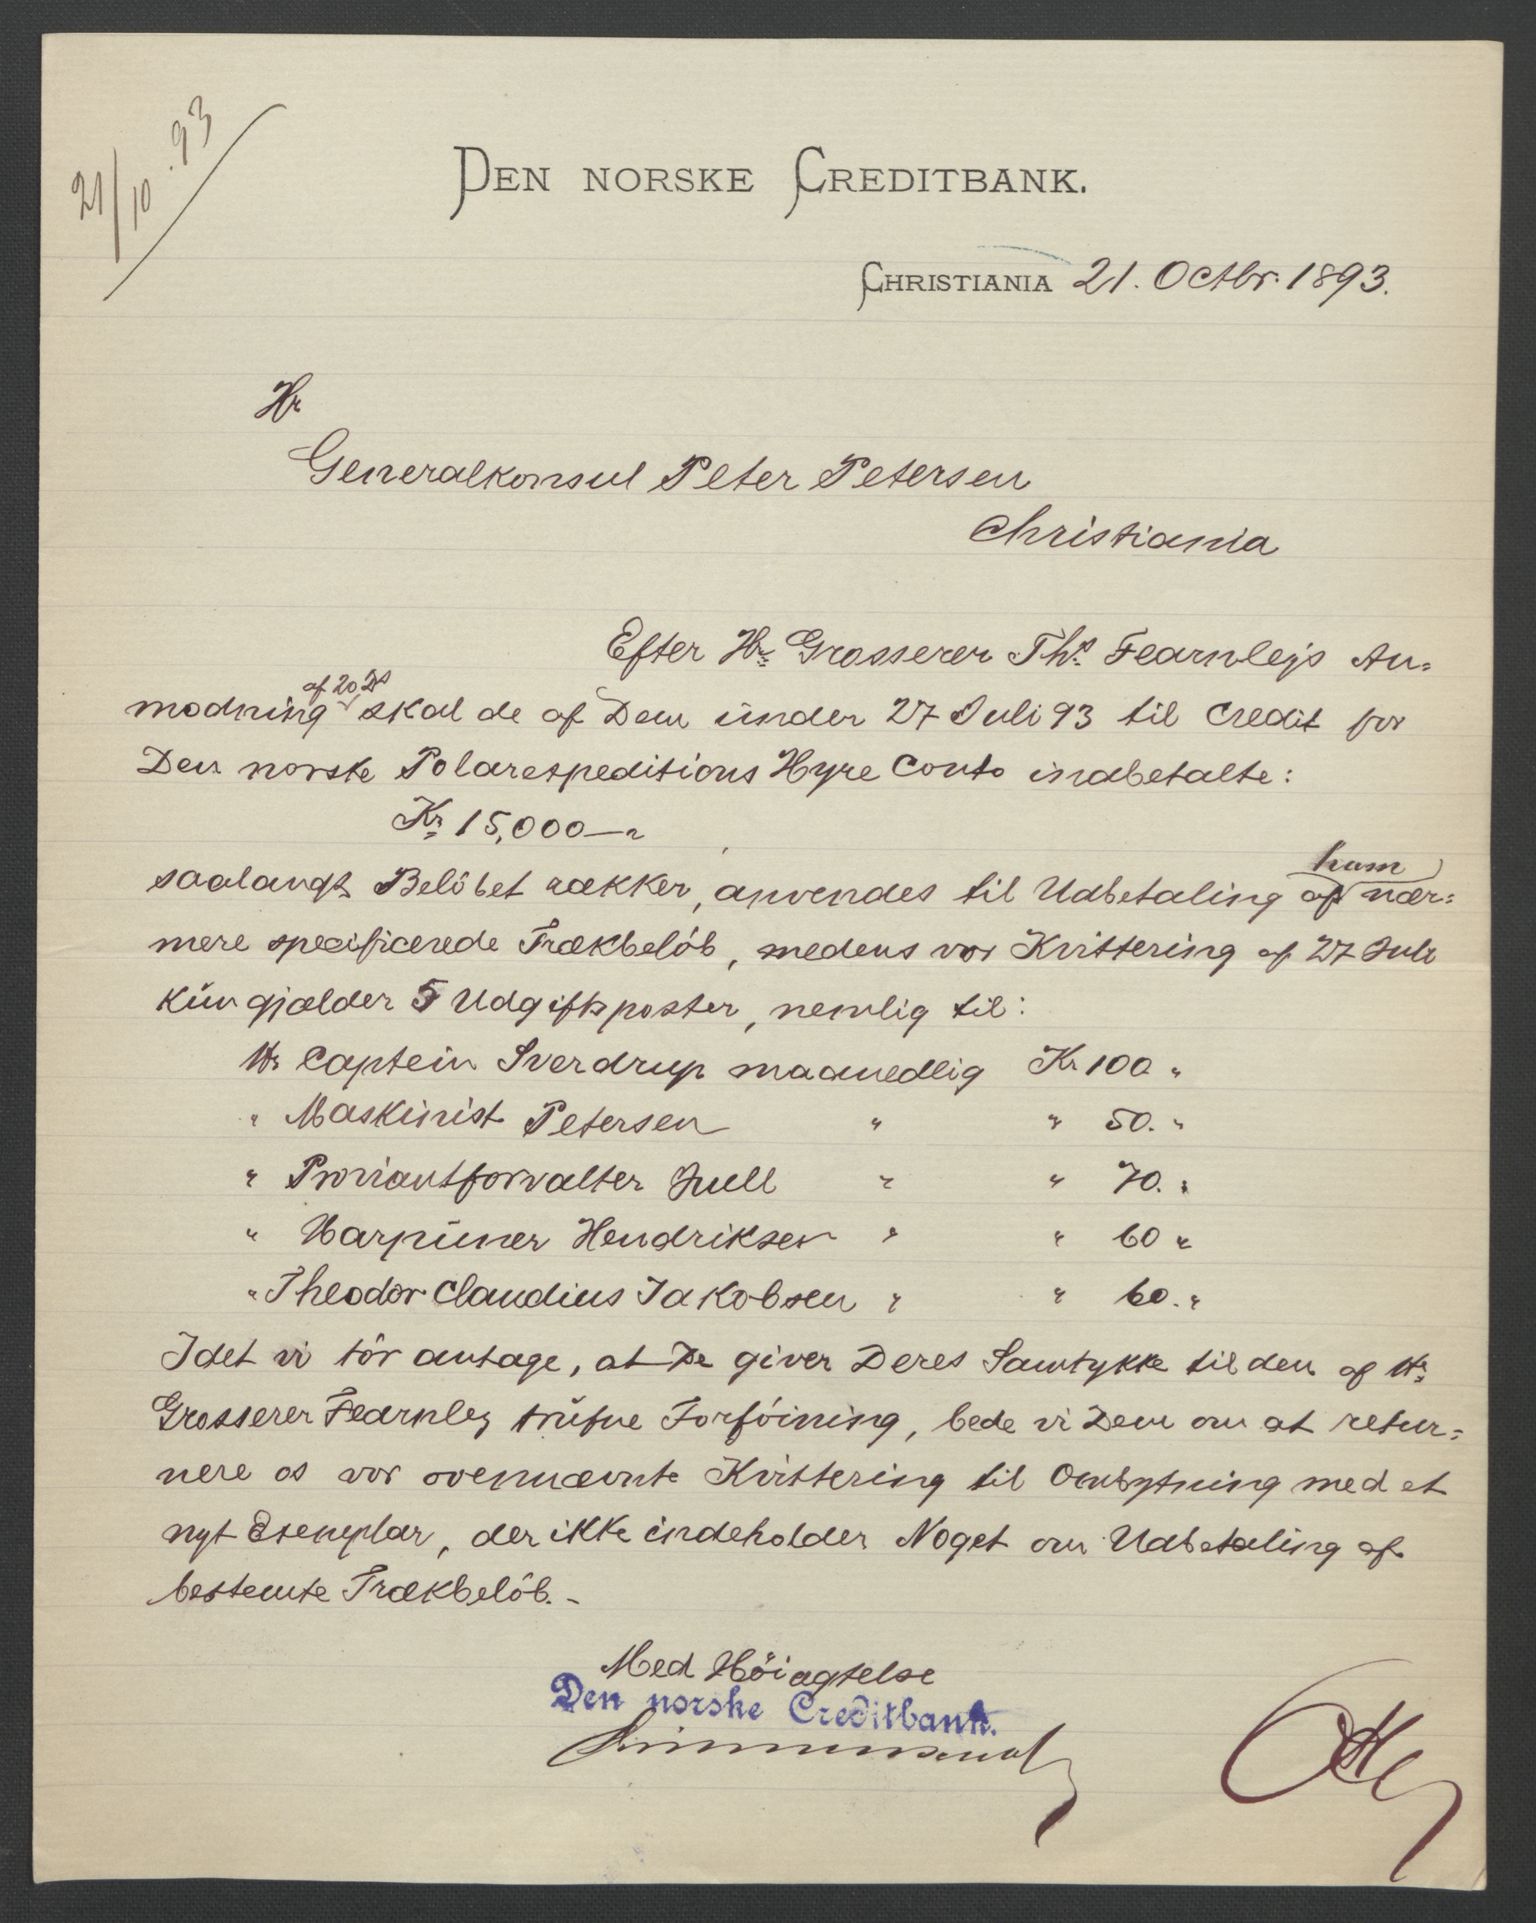 21/10 . 93
DEN NORSKE CREDITBANK.
CHRISTIANIA 21. Octbr. 1893.
Hr
Generalkonsul Peter Petersen
Christiania
Efter Hr. Grosserer Ths. Fearnleys An-
af 20 Ds
modning skal de af Dem under 27 Juli 93 til Credit for
Den norske Polarexpeditions Hyre Conto indbetalte:
Kr 15,000—"
kun
saalangt Belöbet rækker, anvendes til Udbetaling af nær-
mere specificerede Trækbelöb, medens vor Kvittering af 27 Juli
kun gjælder 5 Udgiftsposter, nemlig til:
Hr Captein Sverdrup maanedlig Kr 100 "
" Maskinist Petersen " " 50. "
" Proviantforvalter Juell " " 70. "
" Harpuner Hendriksen " " 60 "
" Theodor Claudius Jakobsen " " 60. "
Idet vi tör antage, at De giver Deres Samtykke til den af Hr.
Grosserer Fearnley trufne Forföining, bede vi Dem om at retur-
nere os vor ovennævnte Kvittering til Ombytning med et
nyt Exemplar, der ikke indeholder Noget om Udbetaling af
bestemte Trækbelöb. -
Med Höiagtelse
Den norske Creditbank.